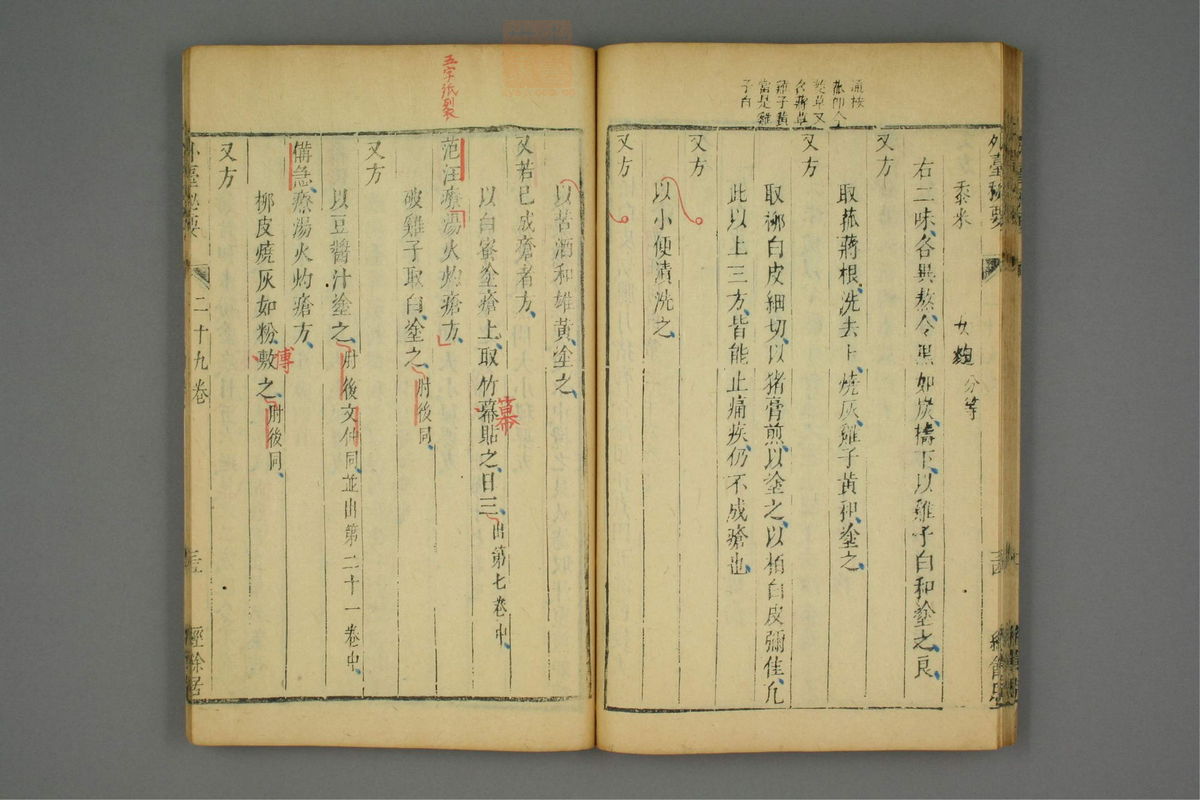 通按
菰即今
茭草又
名蔣草
雞子黃
當是雞
子白
外臺秘要
黍米　女麴分等
右二味各異熬令黑如炭擣下以雞子白和塗之良
又方
取菰蔣根洗去上燒灰雞子黃和塗之
又方
取柳白皮細切以猪膏煎以塗之以栢白皮彌佳凡
此以上三方皆能止痛疾仍不成瘡也
又方
以小便漬洗之
又方
以苦酒和雄黃塗之
又若已成瘡者方
以白蜜塗瘡上取竹幕貼之日三出第七卷中
幕
五字紙裂
范汪療湯火灼瘡方
破雞子取白塗之肘後同
又方
以豆醬汁塗之肘後文仲同並出第二十一卷中
備急療湯火灼瘡方
柳皮燒灰如粉敷之肘後同
傅
又方
外臺秘要
二十九卷
經餘居